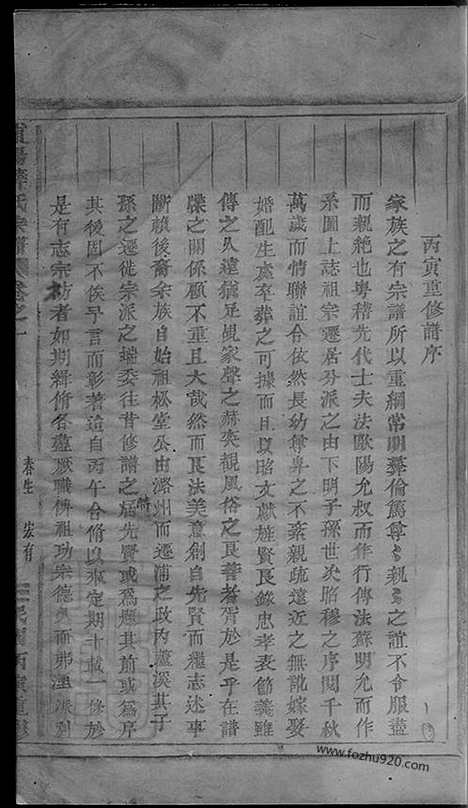 丙寅重修譜序
家族之有宗譜所以重綱常明彝倫篤尊〻親〻之誼不令服盡
而親絕也粤稽先代士夫法歐陽允叔而作行傳法蘇明允而作
系圖上誌祖宗遷居分派之由下明子孫世次昭穆之序閱千秋
萬歲而情聯誼合依然長幼尊卑之不紊親疏遠近之無訛嫁娶
婚配生處卒葬之可據而且以昭文獻旌賢良錄忠孝表節義雖
傳之久遠猶足覘家聲之赫奕觀風俗之良善者胥於是乎在譜
牒之關係顧不重且大哉然而良法美意創自先賢而繼志述事
斷賴後裔余族自始祖松堂公由潞州而遷浦之政內蘆溪其子
孫之遷徙宗派之端委往昔修譜之先賢或為題其前或為序
其後固不俟予言而彰著迨自丙午合脩以來定期十載一修於
是有志宗祊者如期緝脩各盡厥職俾祖功宗德奥而弗湮派別
氏宗譜 卷之一
春生 宏有
民國丙寅重修
www.fozhu920.com